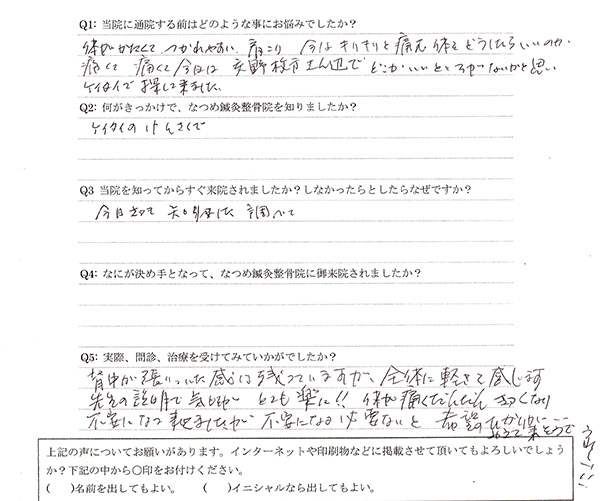 Q1: 当院に通院する前はどのような事にお悩みでしたか？
体がかたくて つかれやすい 肩こり 今はキリキリと痛む 体をどうしたらいいのか
痛くて 痛くて今日は 交野 枚方 辺で どこかいいところがないかと思い
ケイタイで探して来ました
Q2: 何がきっかけで、なつめ鍼灸整骨院を知りましたか？
ケイタイのけんさくで
Q3 当院を知ってからすぐ来院されましたか？しなかったらとしたらなぜですか？
今日初めて 知りました 調べて
Q4: なにが決め手となって、なつめ鍼灸整骨院に御来院されましたか？
Q5: 実際、問診、治療を受けてみていかがでしたか？
背中が張っいた感じは残っていますが、全体に軽さを感じます
先生の説明で気もちが とても楽に!! 体が痛くてだんだん きつくなり
不安になって来ましたが 不安になる必要ないと 希望のひかりが…
見えて来そうで
うれしい!!
上記の声についてお願いがあります。インターネットや印刷物などに掲載させて頂いてもよろしいでしょう
か？下記の中から〇印をお付けください。
( )名前を出してもよい。 ( )イニシャルなら出してもよい。